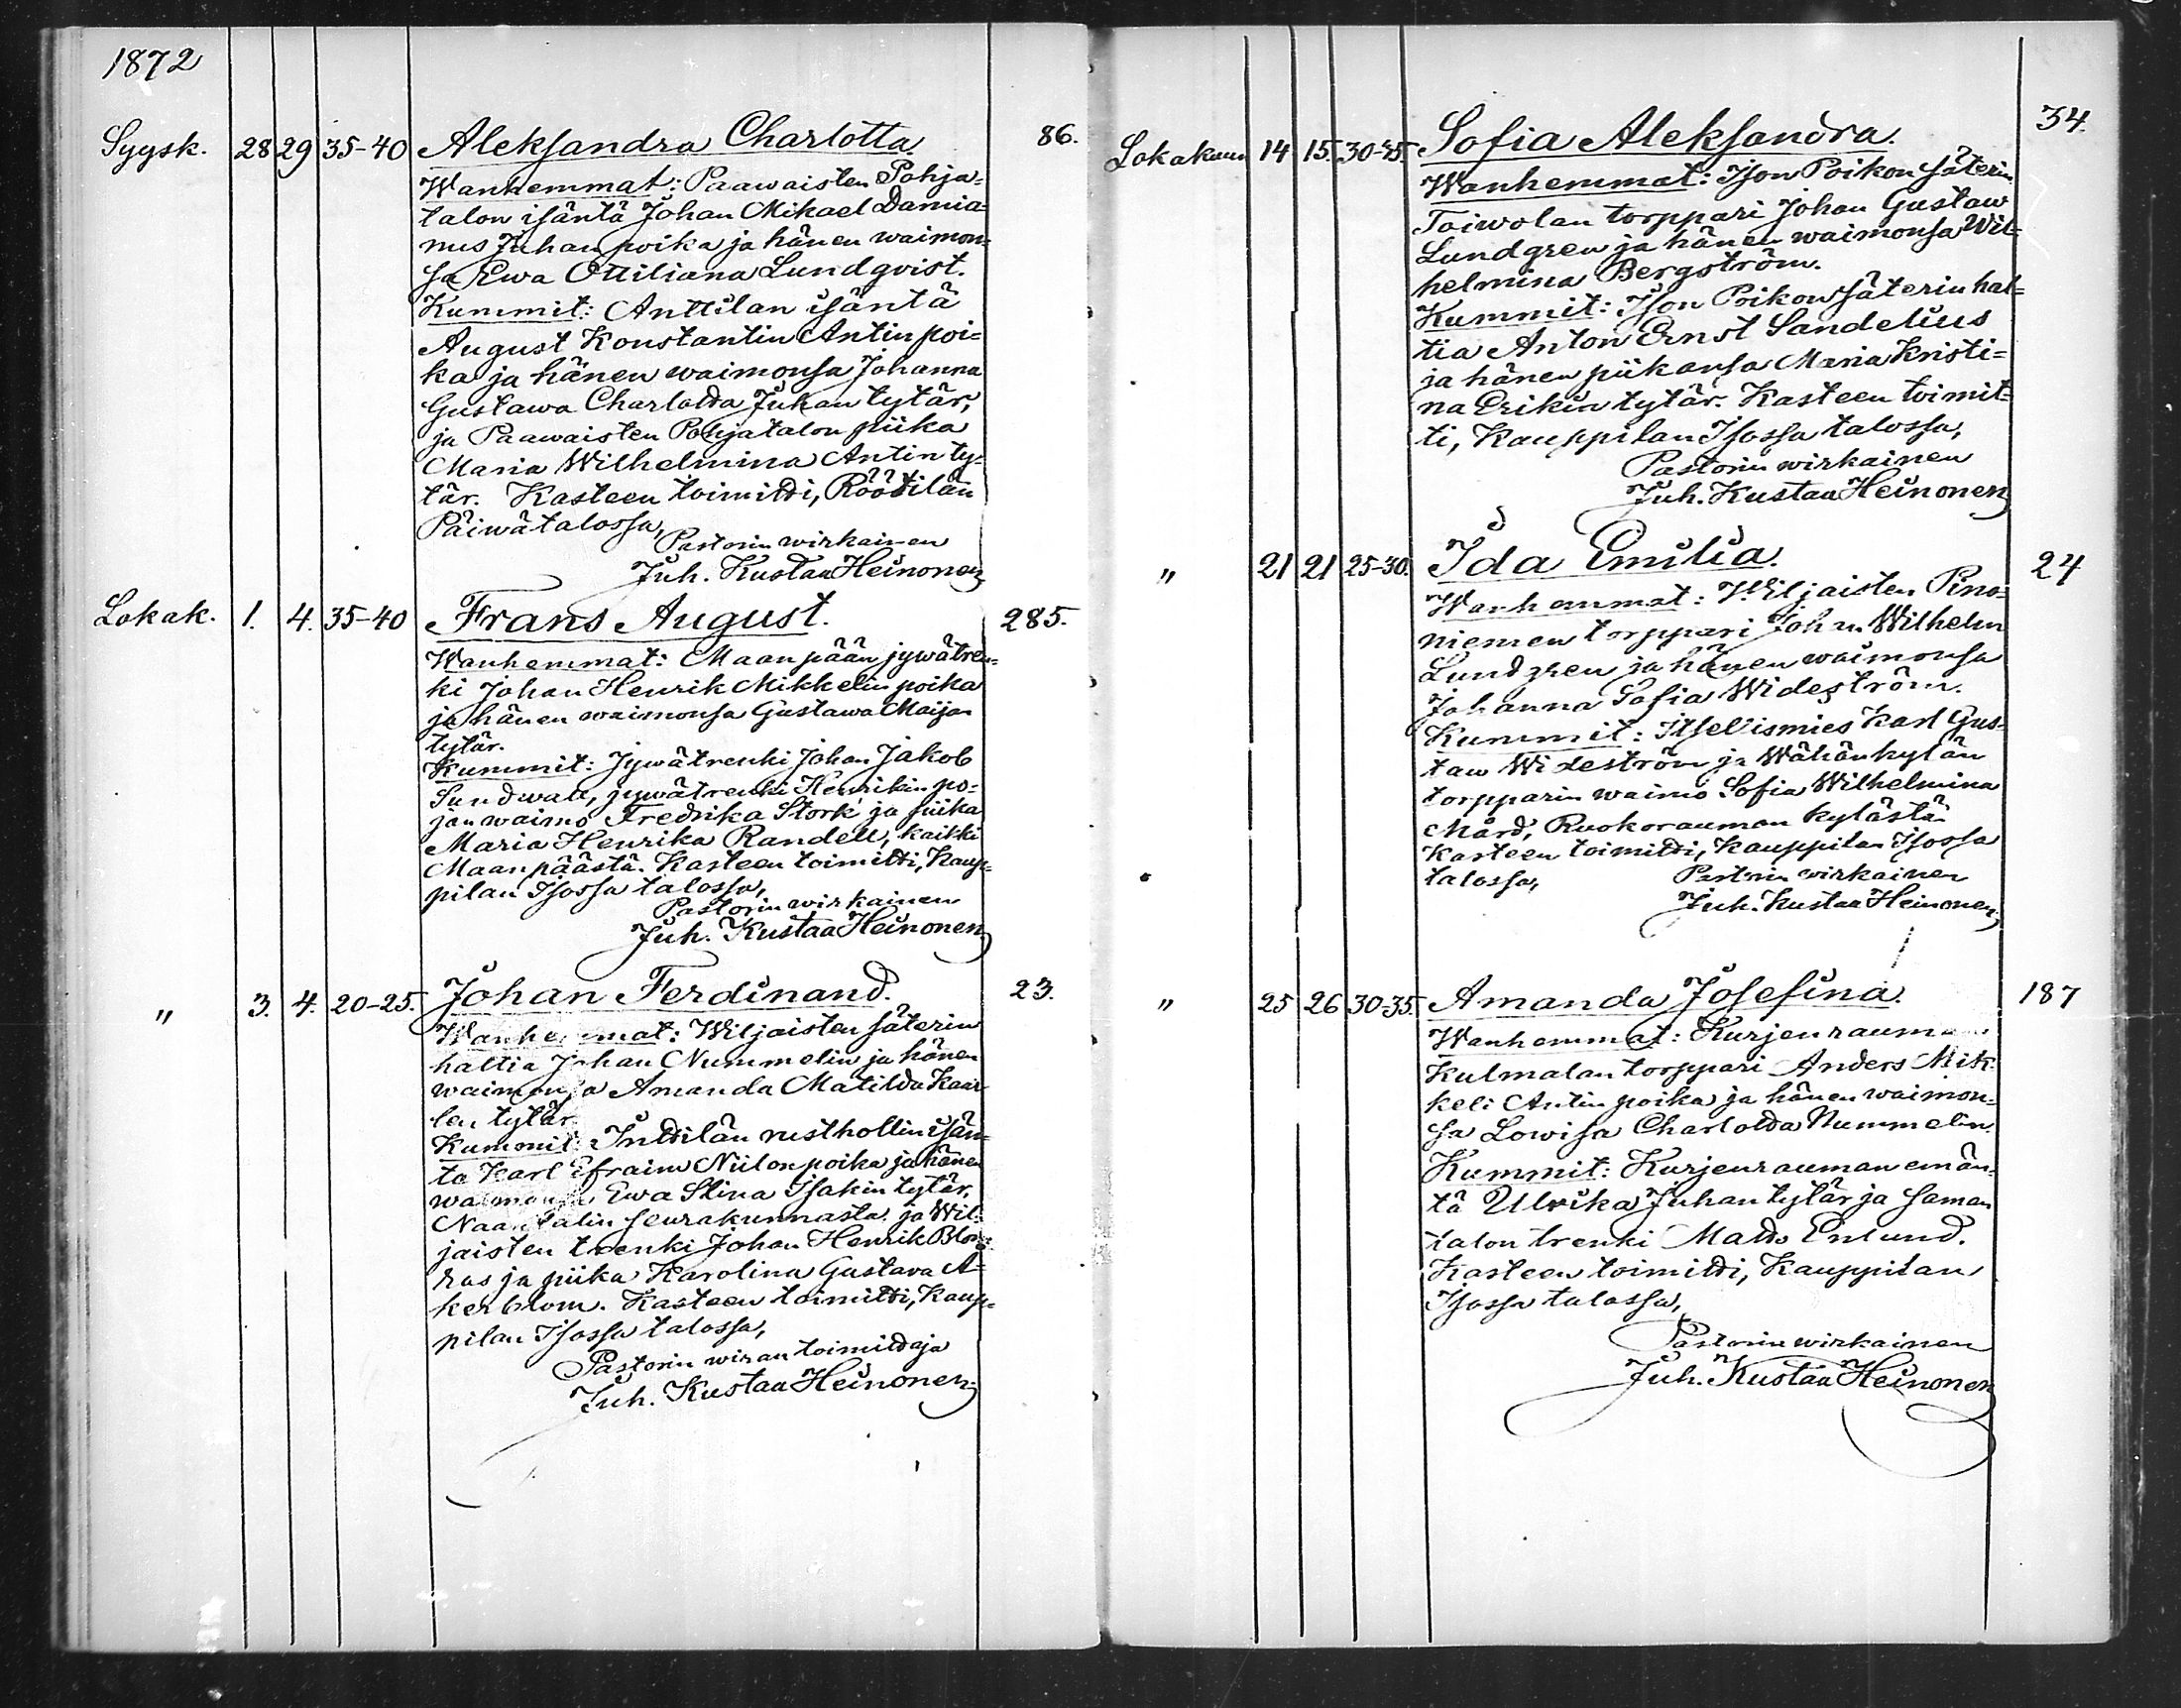 1872
Syysk. 28 29 35-40 Aleksandra Charlotta 86.
Wanhemmat: Paawaisten Pohja=
talon isäntä Johan Mikael Damia=
nus Juhan poika ja hänen waimon=
sa Ewa Ottiliana Lundqvist.
Kummit: Anttilan isäntä
August Konstantin Antin poi=
ka ja hänen waimonsa Johanna
Gustawa Charlotta Juhan tytär,
ja Paawaisten Pohjatalon piika
Maria Wilhelmina Antin ty=
tär. Kasteen toimitti, Röötilän
Päiwätalossa,
Pastorin wirkainen
Juh. Kustaa Heinonen
Lokak. 1. 4. 35-40 Frans August. 285.
Wanhemmat: Maanpään jywätren=
ki Johan Henrik Mikkelin poika
ja hänen waimonsa Gustawa Maijan
tytär.
Kummit: Jywätrenki Johan Jakob
Sundwall, jywätrenki Henrikin po=
jan waimo Fredrika Stork ja piika
Maria Henrika Randell, kaikki
Maanpäästä. Kasteen toimitti, Kaup=
pilan Isossa talossa,
Pastorin wirkainen
Juh. Kustaa Heinonen
" 3. 4. 20-25. Johan Ferdinand. 23.
Wanhemmat: Wiljaisten säterin
haltia Johan Nummelin ja hänen
waimonsa Amanda Matilda Kaar
len tytär
Kummit: Inttilän rusthollin isän=
tä Karl Efraim Niilon poika ja hänen
waimonsa Ewa Stina Isakin tytär,
Naantalin seurakunnasta ja Wil=
jaisten trenki Johan Henrik Blom=
ras ja piika Karolina Gustava A=
kerblom. Kasteen toimitti, Kaup=
pilan Isossa talossa,
Pastorin wiran toimittaja
Juh. Kustaa Heinonen
Lokakuun 14 15. 30-35. Sofia Aleksandra. 34.
Wanhemmat: Ison Poikon säterin
Toiwolan torppari Johan Gustaw
Lundgren ja hänen waimonsa Wil=
helmina Bergström.
Kummit: Ison Poikon säterin hal=
tia Anton Ernst Sandelius
ja hänen piikansa Maria Kristi=
na Erikin tytär. Kasteen toimit=
ti, Kauppilan Isossa talossa,
Pastorin wirkainen
Juh. Kustaa Heinonen
" 21 21 25-30. Ida Emilia. 24
Wanhemmat: Wiljaisten Pino=
niemen torppari Johan Wilhelm
Lundgren ja hänen waimonsa
Johanna Sofia Wideström.
Kummit: Itsellismies Karl Gus=
taw Wideström ja Wähänkylän
torpparin waimo Sofia Wilhelmina
Mård, Ruokorauman kylästä.
Kasteen toimitti, Kauppilan Isossa
talossa,
Pastorin wirkainen
Juh. Kustaa Heinonen
" 25 26 30-35. Amanda Josefina. 187
Wanhemmat: Kurjenrauman
Kulmalan torppari Anders Mik=
keli Antin poika ja hänen waimon=
sa Lowisa Charlotta Nummelin.
Kummit: Kurjenrauman emän=
tä Ulrika Juhan tytär ja saman
talon trenki Matts Enlund.
Kasteen toimitti, Kauppilan
Isossa talossa,
Pastorin wirkainen
Juh. Kustaa Heinonen